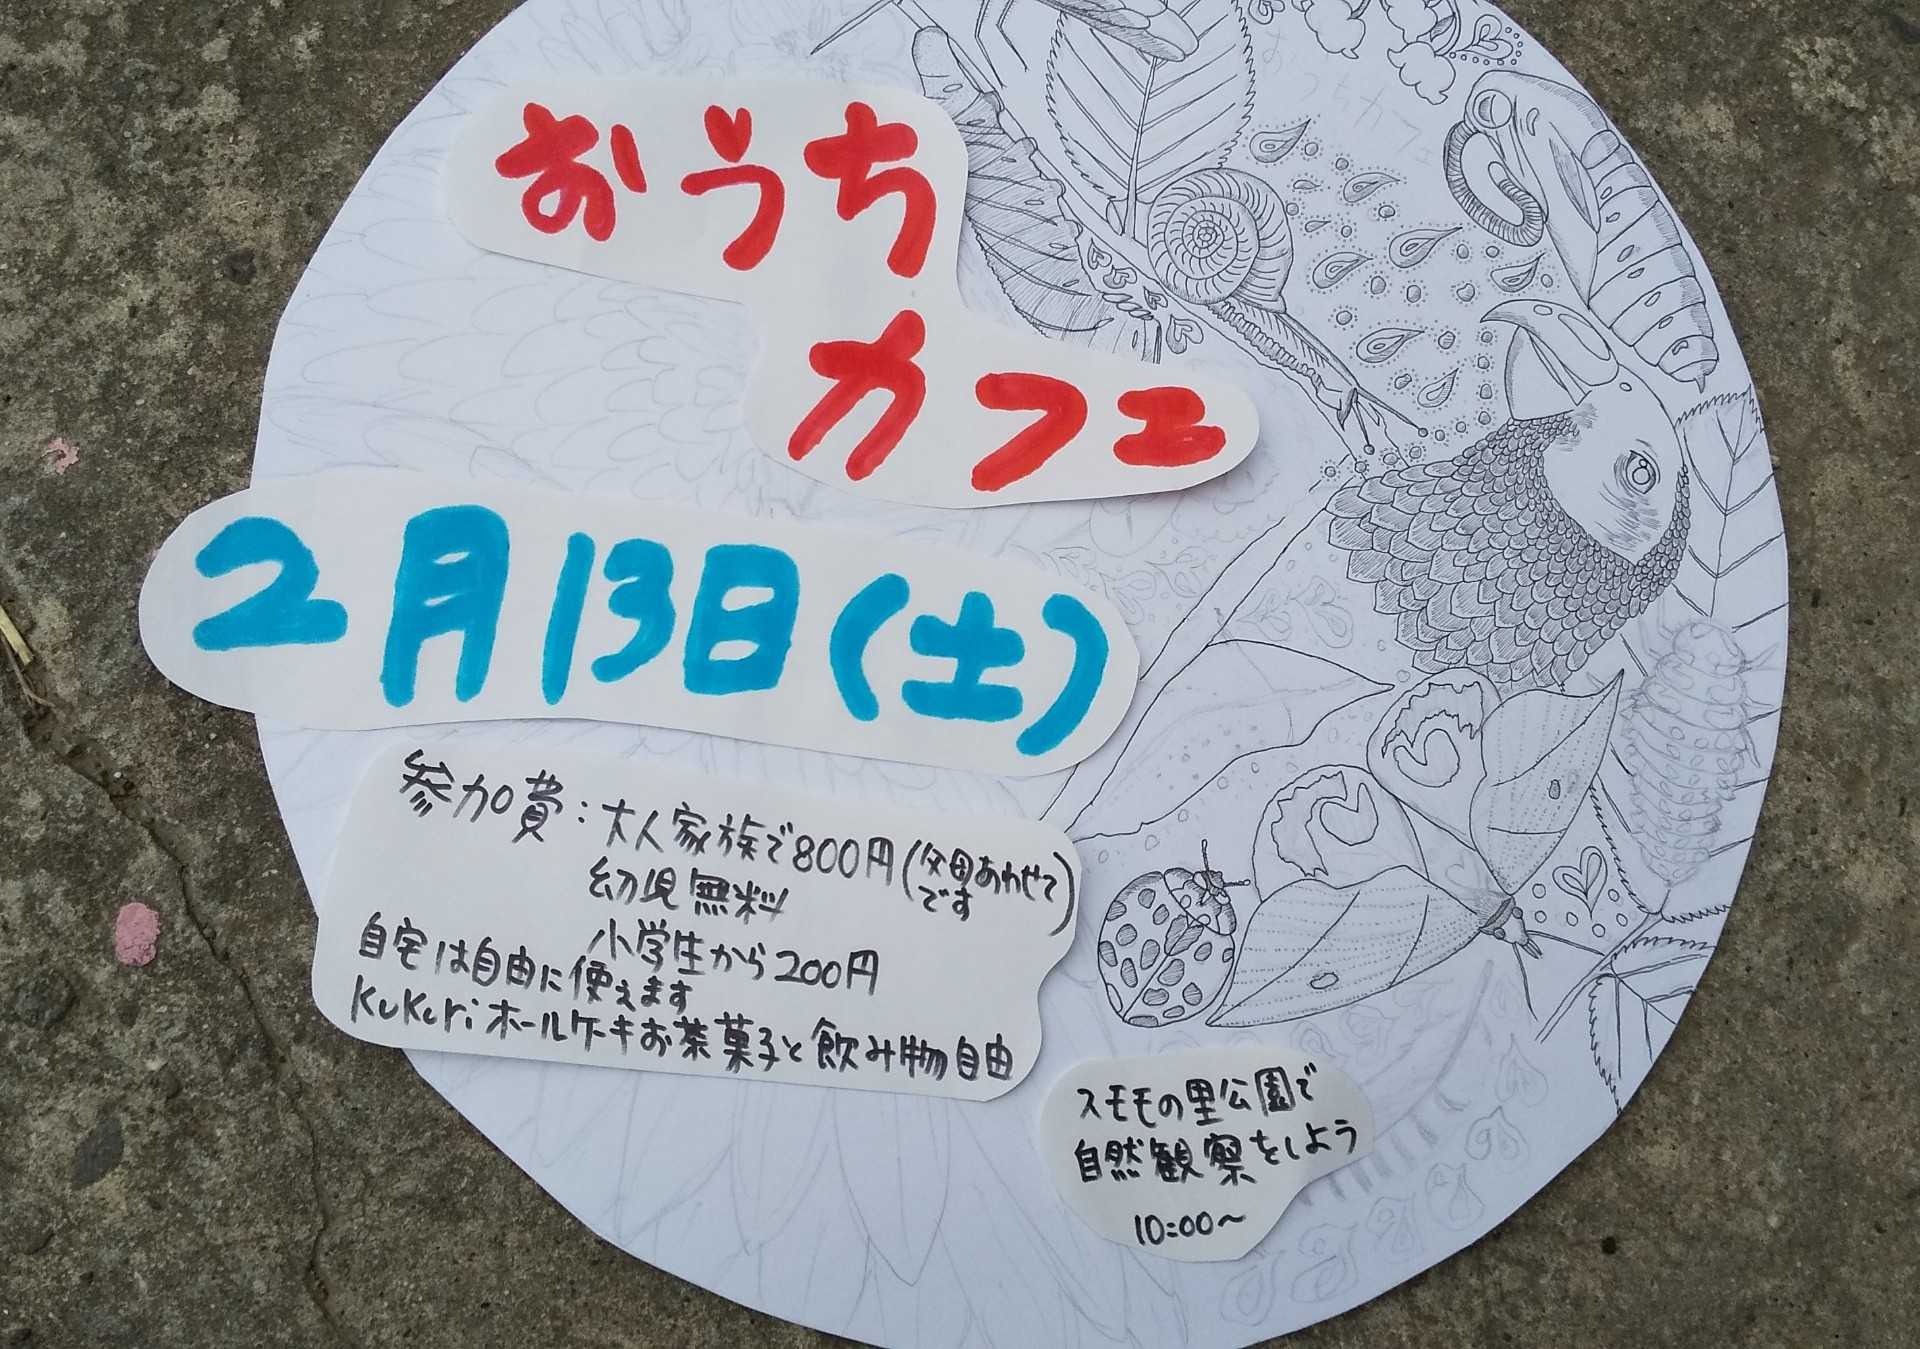 おうち
カフェ
2月13日(土)
参加費:大人家族で800円(父母あわせて
です)
幼児無料
小学生から200円
自宅は自由に使えます
KuKuriホールケーキお茶菓子と飲み物自由
スモモの里公園で
自然観察をしよう
10:00〜